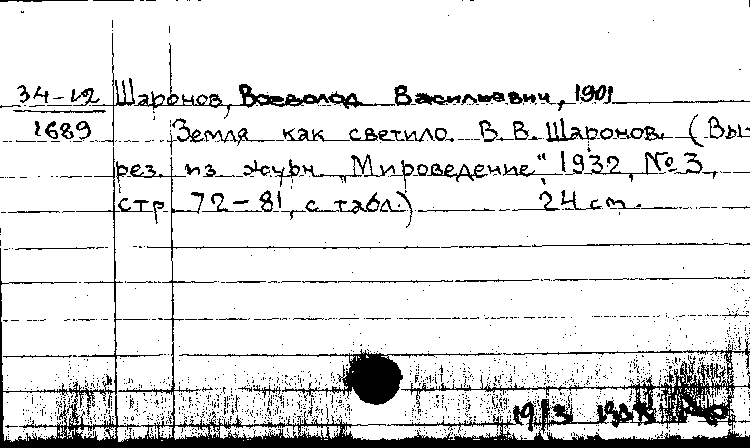 34-12 Шаронов, Всеволод Васильевич, 1901
1689 Земля как светило. В.В. Шаронов. (Вы-
рез. из журн. „Мироведение“ 1932, № 3,
стр. 72-81, с табл.) 24 cm.